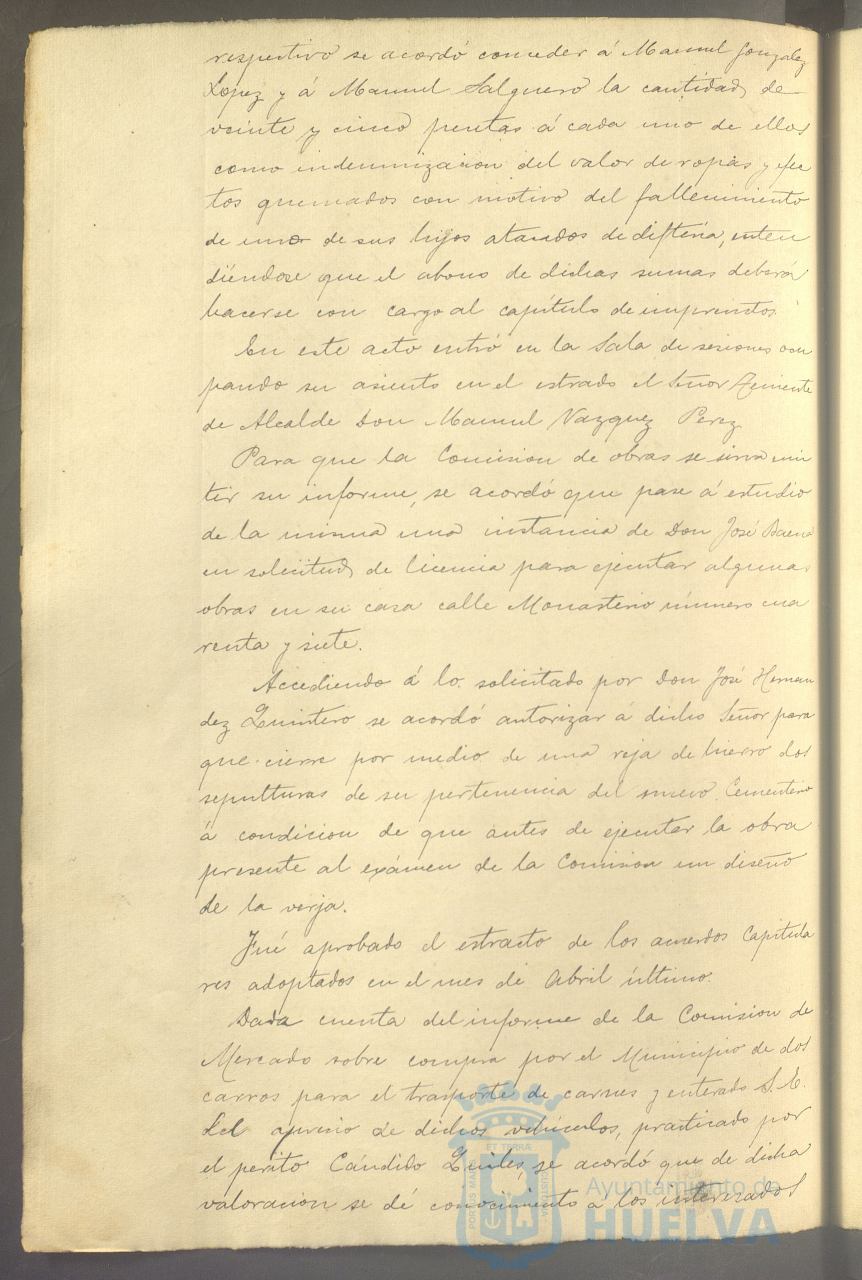 respectivo se acordó conceder á Manuel Gonzalez
Lopez y á Manuel Salguero la cantidad de
veinte y cinco pesetas á cada uno de ellos
como indemnizacion del valor de ropas y efec
tos quemados con motivo del fallecimiento
de uno de sus hijos atacados de difteria, enten
diéndose que el abono de dichas sumas deberá
hacerse con cargo al capítulo de imprevistos.
En este acto entró en la Sala de sesiones ocu
pando su asiento en el estrado el Señor Teniente
de Alcalde Don Manuel Vazquez Perez
Para que la Comision de obras se sirva emi
tir su informe, se acordó que pase á estudio
de la misma una instancia de Don José Baena
en solicitud de licencia para ejecutar algunas
obras en su casa calle Monasterio número cua
renta y siete.
Accediendo á lo solicitado por Don José Hernan
dez Quintero se acordó autorizar á dicho Señor para
que cierre por medio de una reja de hierro dos
sepulturas de su pertenencia del nuevo Cementerio
á condicion de que antes de ejecutar la obra
presente al exámen de la Comision un diseño
de la verja.
Fué aprobado el estracto de los acuerdos Capitula
res adoptados en el mes de Abril último.
Dada cuenta del informe de la Comision de
Mercado sobre compra por el Municipio de dos
carros para el trasporte de carnes y enterado S. E.
del aprecio de dichos vehículos, practicado por
el perito Cándido Quilés, se acordó que de dicha
valoracion se dé conocimiento á los interesados
Ayuntamiento de
HUELVA